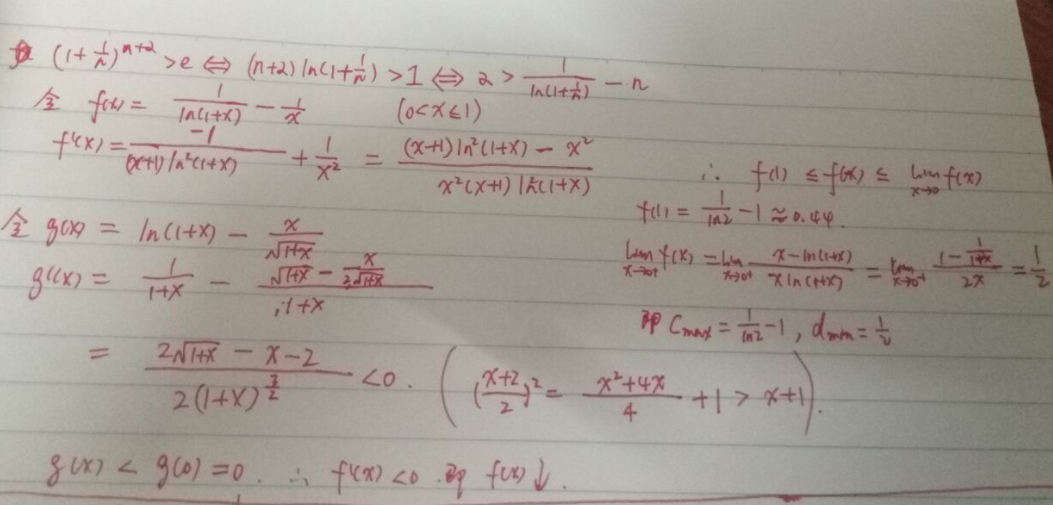 (1+\frac{1}{n})^{n+2} > e ⇔ (n+2) ln(1+\frac{1}{n}) > 1 ⇔ 2 > \frac{1}{ln(1+\frac{1}{n})} - n
令 f(x) = \frac{1}{ln(1+x)} - \frac{1}{x} (0<x≤1)
f'(x) = \frac{-1}{(x+1)ln²(1+x)} + \frac{1}{x²} = \frac{(x+1)ln²(1+x) - x²}{x²(x+1)ln²(1+x)}
令 g(x) = ln(1+x) - \frac{x}{\sqrt{1+x}}
g'(x) = \frac{1}{1+x} - \frac{\sqrt{1+x} - \frac{x}{2\sqrt{1+x}}}{1+x}
= \frac{2\sqrt{1+x} - x - 2}{2(1+x)^{\frac{3}{2}}} < 0. ((\frac{x+2}{2})² = \frac{x²+4x}{4} + 1 > x+1).
g(x) < g(0) = 0. ∴ f'(x) < 0. 即 f(x)↓.
∴ f(1) ≤ f(x) ≤ \lim_{x→0} f(x)
f(1) = \frac{1}{ln2} - 1 ≈ 0.44.
\lim_{x→0+} f(x) = \lim_{x→0+} \frac{x - ln(1+x)}{x ln(1+x)} = \lim_{x→0+} \frac{1 - \frac{1}{1+x}}{2x} = \frac{1}{2}
即 Cmax = \frac{1}{ln2} - 1, dmin = \frac{1}{2}